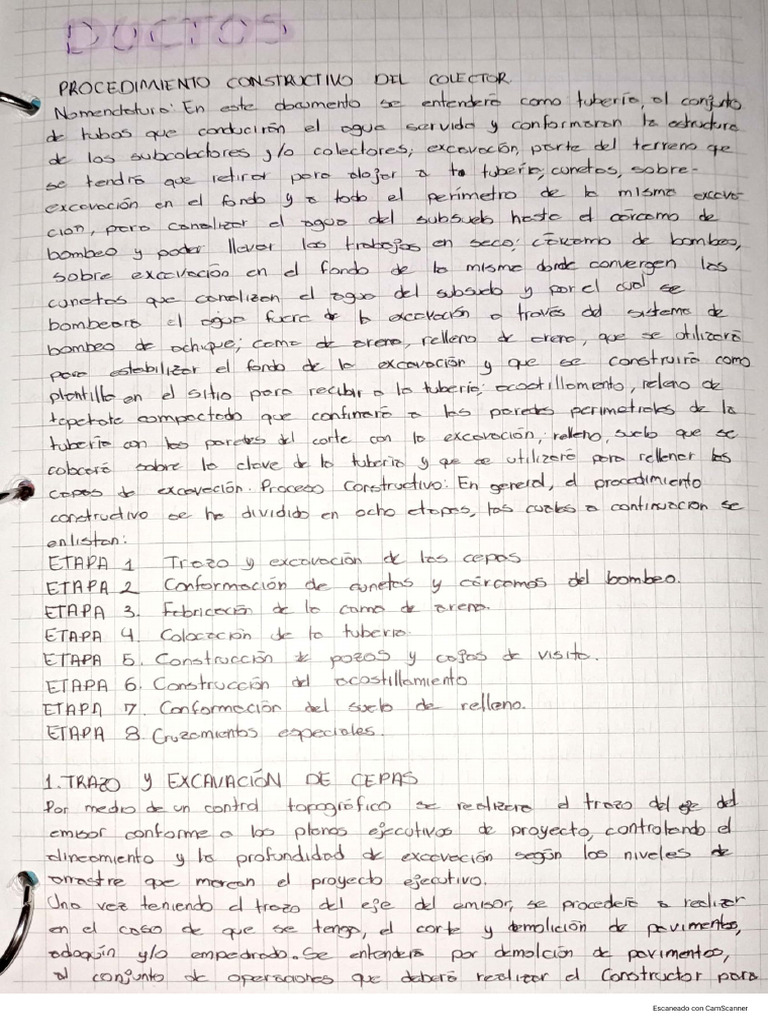 DUCTOS
PROCEDIMIENTO CONSTRUCTIVO DEL COLECTOR
Nomenclatura: En este documento se entenderá como tubería, al conjunto
de tubos que conducirán el agua servida y conformaran la estructura
de los subcolectores y/o colectores; excavación, parte del terreno que
se tendrá que retirar para alojar a la tubería; cunetas, sobre-
excavación en el fondo y a todo el perímetro de la misma excava-
cion, para canalizar el agua del subsuelo hasta el cárcamo de
bombeo y poder llevar los trabajos en seco; cárcamo de bombeo,
sobre excavación en el fondo de la misma donde convergen las
cunetas que canalizan el agua del subsuelo y por el cual se
bombeara el agua fuera de la excavación a través del sistema de
bombeo de achique; cama de arena, relleno de arena, que se utilizará
para estabilizar el fondo de la excavación y que se construirá como
plantilla en el sitio para recibir a la tubería; acostillamiento, relleno de
tepetate compactado que confinará a las paredes perimetrales de la
tubería con las paredes del corte con la excavación; relleno, suelo que se
colocará sobre la clave de la tubería y que se utilizará para rellenar las
cepas de excavación. Proceso Constructivo: En general, el procedimiento
constructivo se ha dividido en ocho etapas, las cuales a continuación se
enlistan:
ETAPA 1 Trazo y excavación de las cepas
ETAPA 2 Conformación de cunetas y cárcamos del bombeo.
ETAPA 3. Fabricación de la cama de arena.
ETAPA 4. Colocación de la tubería.
ETAPA 5. Construcción de pozos y cajas de visita.
ETAPA 6. Construcción del acostillamiento
ETAPA 7. Conformación del suelo de relleno.
ETAPA 8. Cruzamientos especiales.
1. TRAZO Y EXCAVACIÓN DE CEPAS
Por medio de un control topográfico se realizara el trazo del eje del
emisor conforme a los planos ejecutivos de proyecto, controlando el
alineamiento y la profundidad de excavación según los niveles de
arrastre que marcan el proyecto ejecutivo.
Una vez teniendo el trazo del eje del emisor, se procederá a realizar
en el caso de que se tenga, el corte y demolición de pavimentos,
adoquín y/o empedrado. Se entenderá por demolción de pavimentos,
al conjunto de operaciones que deberá realizar el Constructor para
Escaneado con CamScanner